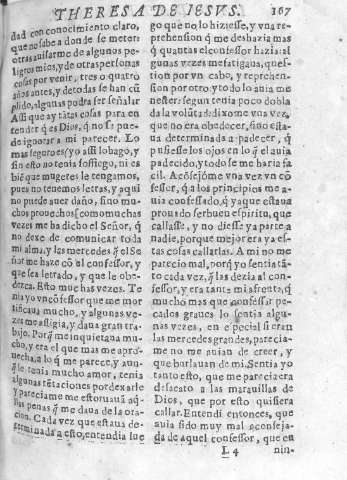 THERESA DE IESVS. 167
dad con conocimiento claro,
que no sabe a donde se meter:
otras auisarme de algunos pe-
ligros mios, y de otras personas
cosas por venir, tres o quatro
años antes, y de todas se han cũ
plido, algunas podra ser señalar
Assi que ay tãtas cosas para en-
tender q̃ es Dios, q̃ no se pue-
de ignorar a mi parecer. Lo
mas seguro es (yo assi lo hago, y
sin esto no tenia sossiego, ni es
biẽ que mugeres le tengamos,
pues no tenemos letras, y aqui
no puede auer daño, sino mu-
chos prouechos) como muchas
vezes me ha dicho el Señor, q̃
no dexe de comunicar toda
mi alma, y las mercedes q̃ el Se
ñor me haze cõ el confessor, y
que sea letrado, y que le obe-
dezca. Esto muchas vezes. Te
nia yo vn cõfessor que me mor
tificaua mucho, y algunas ve-
zes me afligia, y daua gran tra-
bajo. Porq̃ me inquietaua mu
cho, y era el que mas me apro-
uecho, a lo q̃ me parece, y aun-
que le tenia mucho amor, tenia
algunas tẽtaciones por dexarle
y pareciame me estoruauã aq̃-
llas penas q̃ me daua de la ora-
cion. Cada vez que estaua de-
terminada a esto, entendia lue
go que no lo hiziesse, y vna re-
prehension q̃ me deshazia mas
q̃ quantas el confessor hazia: al
gunas vezes me fatigaua, ques-
tion por vn cabo, y reprehen-
sion por otro, y todo lo auia me
nester: segun tenia poco dobla
da la volũtad: dixome vna vez,
que no era obedecer, sino esta-
ua determinada a padecer, q̃
pusiesse los ojos en lo q̃ el auia
padecido, y todo se me haria fa
cil. Acõsejóme vna vez vn cõ
fessor, q̃ a los principios me a-
uia confessado, q̃ ya que estaua
prouado ser buen espiritu, que
callasse, y no diesse ya parte a
nadie, porque mejor era ya es-
tas cosas callarlas. A mi no me
parecio mal, porq̃ yo sentia tã-
to cada vez, q̃ las dezia al con-
fessor, y era tanta mi afrenta, q̃
mucho mas que confessar pe-
cados graues lo sentia algu-
nas vezes, en especial si eran
las mercedes grandes, parecia-
me no me auian de creer, y
que burlauan de mi. Sentia yo
tanto esto, que me parecia era
desacato a las marauillas de
Dios, que por esto quisiera
callar. Entendi entonces, que
auia sido muy mal aconseja-
da de aquel confessor, que en
L 4 nin-